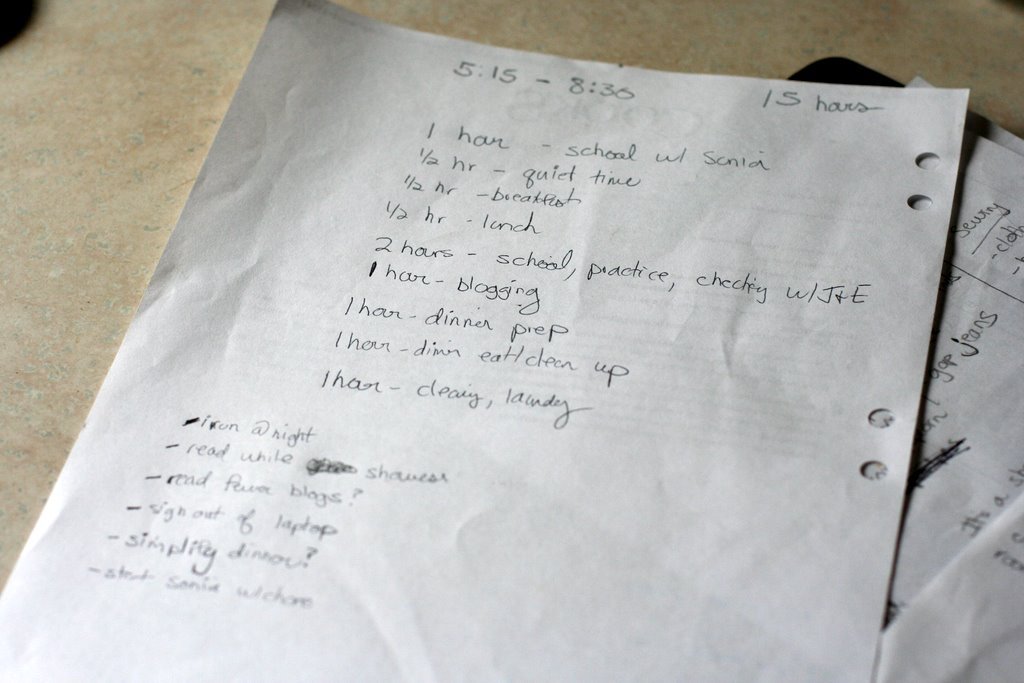 5:15 - 8:30
15 hours
1 hour - school w/ Sonia
1/2 hr - quiet time
1/2 hr - breakfast
1/2 hr - lunch
2 hours - school, practice, checking w/ J&E
1 hour - blogging
1 hour - dinner prep
1 hour - dinner eat/clean up
1 hour - cleaning, laundry
- iron @ night
- read while showers
- read fewer blogs?
- sign out of laptop
- simplify dinner?
- start Sonia w/ chore
sewing
gap jeans
It's a